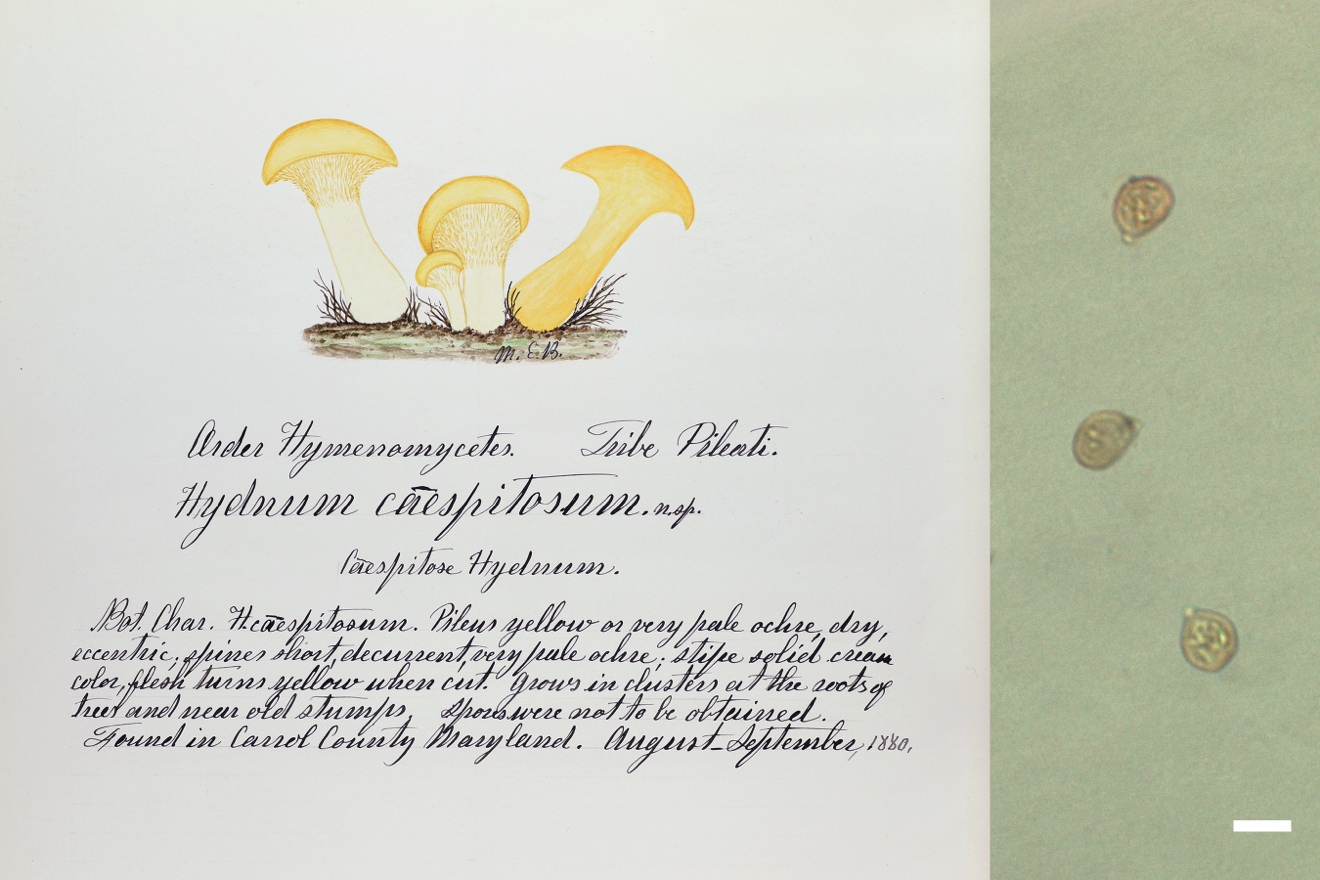 M. E. B.
Order Hymenomycetes. Tribe Pileati.
Hydnum cāespitosum. n.sp.
Cāespitose Hydnum.
Bot. Char. H. cāespitosum. Pileus yellow or very pale ochre, dry,
eccentric; spines short, decurrent, very pale ochre; stipe solid cream
color, flesh turns yellow when cut. Grows in clusters at the roots of
trees and near old stumps. Spores were not to be obtained.
Found in Carrol County Maryland. August-September, 1880.